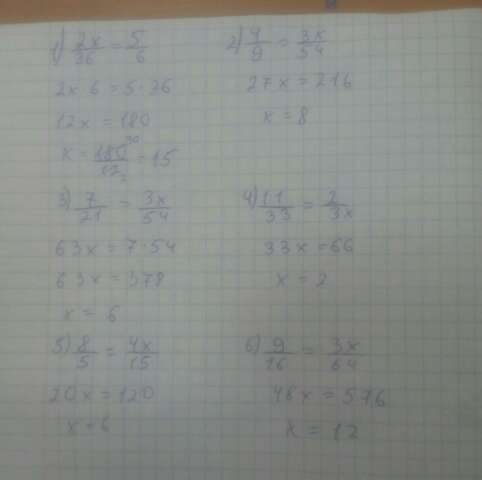 1) 2x/36 = 5/6
2x·6 = 5·36
12x = 180
x = 180/12 = 15
2) 4/9 = 3x/54
27x = 216
x = 8
3) 7/21 = 3x/54
63x = 7·54
63x = 378
x = 6
4) 11/33 = 2/3x
33x = 66
x = 2
5) 8/5 = 4x/15
20x = 120
x = 6
6) 9/16 = 3x/64
48x = 576
x = 12